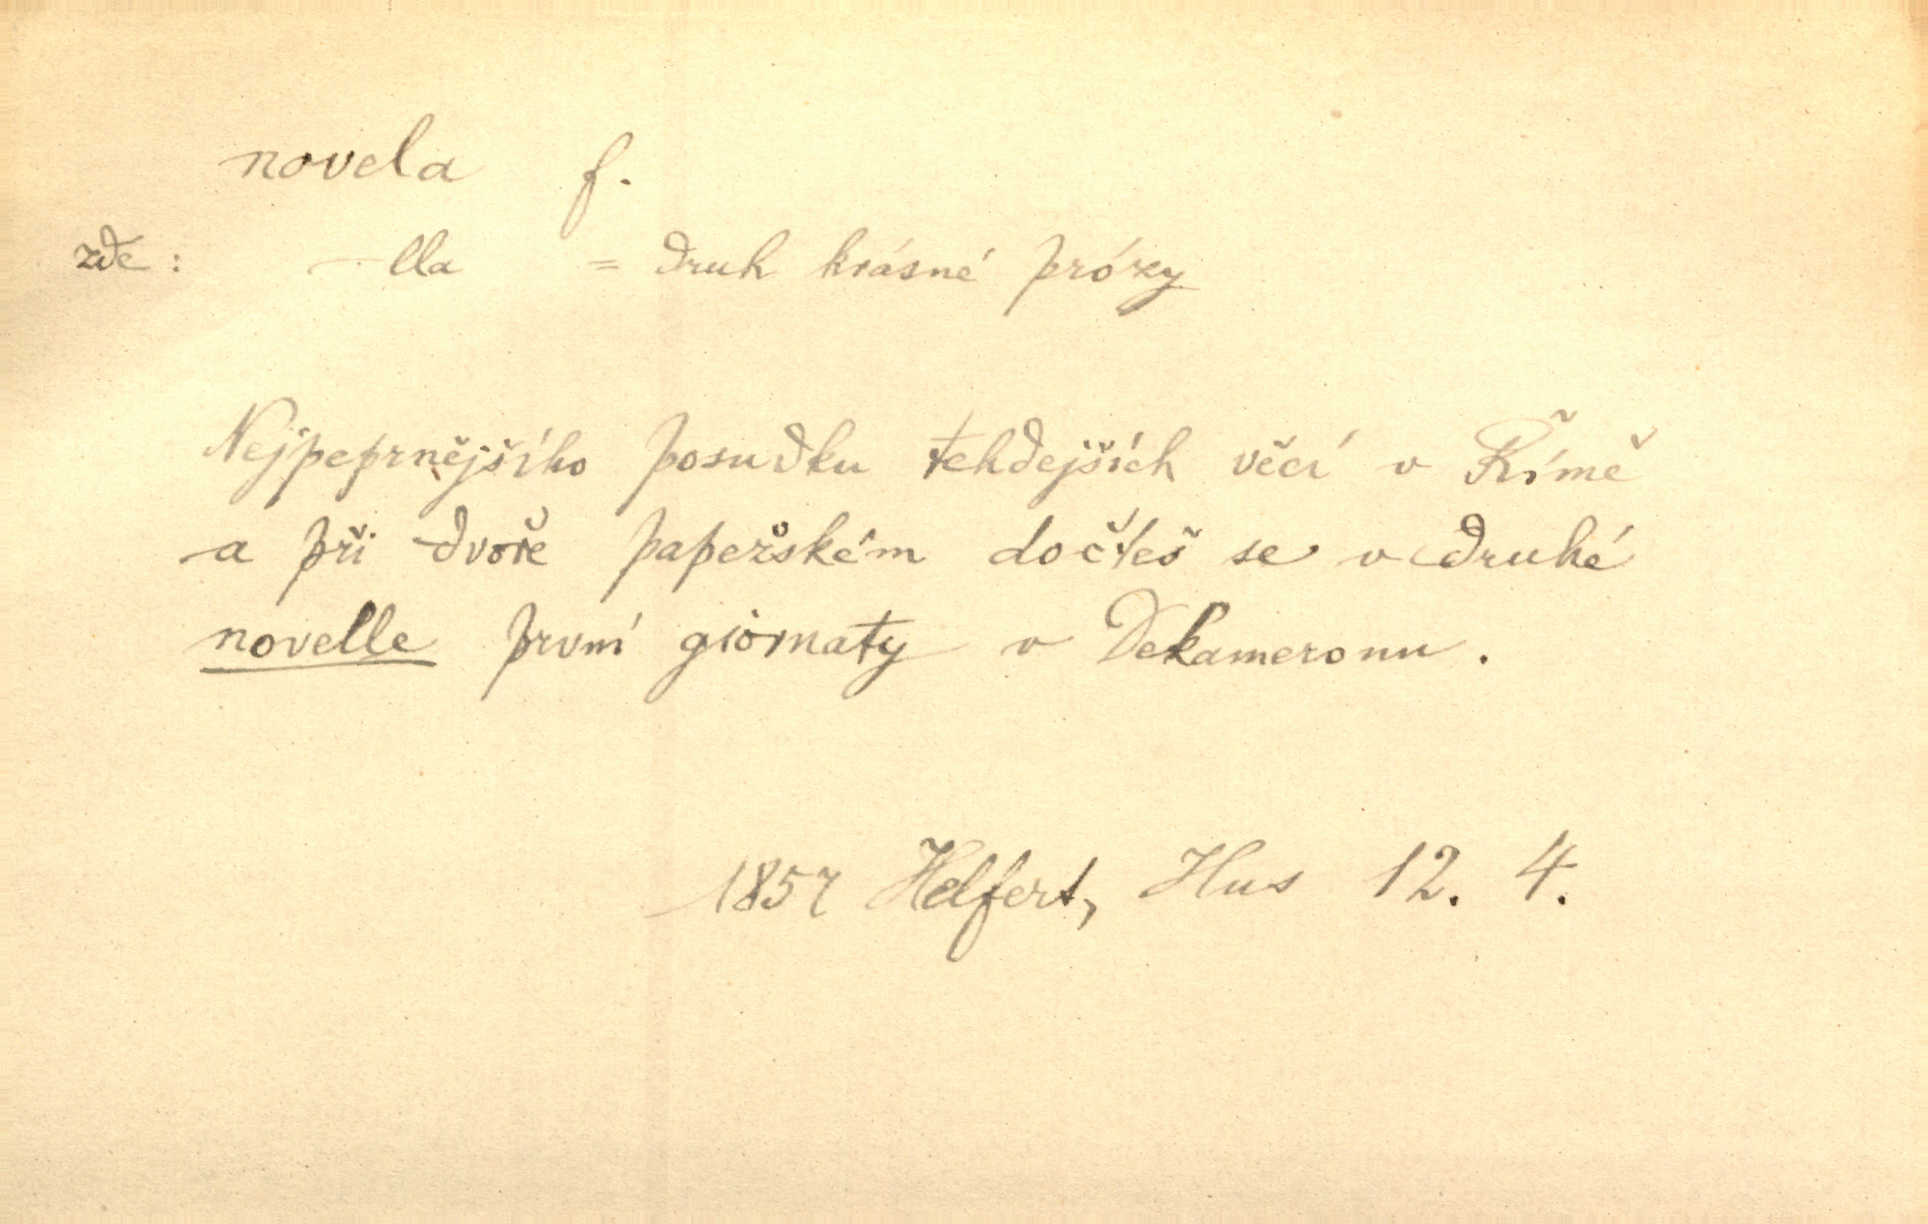 novela f.
zde: -lla = druh krásné prózy
Nejpeprnějšího posudku tehdejších věcí v Římě
a při dvoře papežském dočteš se v druhé
novelle první giornaty v Dekameronu.
1857 Helfert, Hus 12. 4.